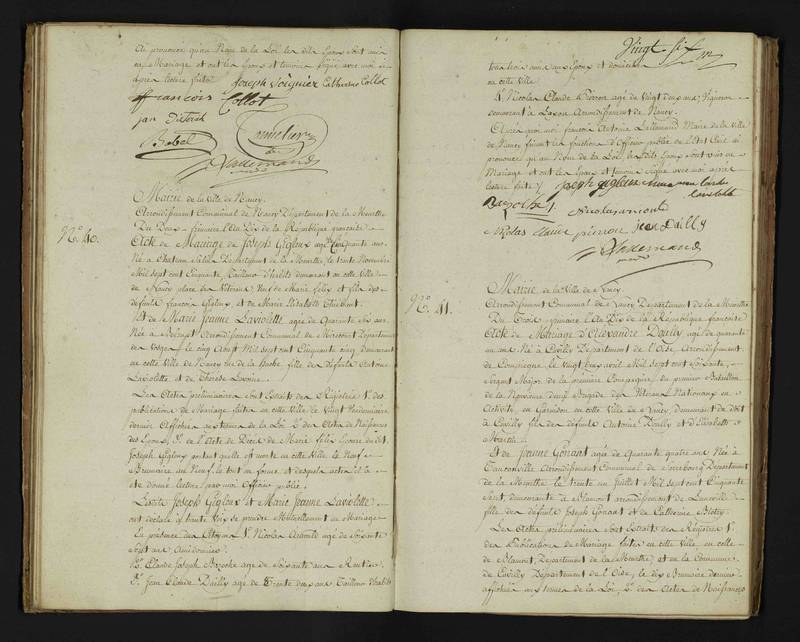 Ai prononcé qu'au Nom de la Loi les dits Epoux sont unis
en Mariage et ont les Epoux et temoins signé avec moi
après lecture faite Joseph Soignier Catherine Collot
françois Collot
jan Dieterich
Babel
Lallemand
Mairie de la Ville de Nancy.
Arrondissement Communal de Nancy Département de la Meurthe
Du Deux frimaire l'An Dix de la République française
N.º 40.
Acte de Mariage de Joseph Gigleux agé de Cinquante ans
Né à Chateau Salins Département de la Meurthe, le trente Novembre
Mil sept cent Cinquante, Tailleur d'habits demeurant en cette Ville
de Nancy place de Veteran, Veuf de Marie felix et fils des
defunts françois Gigleux et de Marie Elisabeth Thiebert.
Et de Marie Jeanne Laviolette agée de Quarante six ans
Née à Arrondissement Communal de Mirecourt Département
des Vosges, le cinq Août Mil sept cent Cinquante cinq demeurant
en cette Ville de Nancy rue de la fille de defunts Antoine
Laviolette, et de Thérèse
Les Actes préliminaires sont Extraits des Régistres 1.º des
publications de Mariage faites en cette Ville de Vingt Vendemiaire
dernier Affichées au termes de la Loi 2.º des Actes de Naissances
des Epoux, 3.º de l'Acte de Décès de Marie felix Epouse du dit
Joseph Gigleux portant quelle est morte en cette Ville le Neuf
Brumaire an Neuf, le tout en forme, et desquels actes il a
été donné lecture par moi Officier public.
Lesdits Joseph Gigleux Et Marie Jeanne Laviolette
ont declaré à haute Voix se prendre Mutuellement en Mariage
En présence des Citoyens 1.º Nicolas agé de soixante
huit ans Amidonnier.
2.º Claude Joseph agé de Soixante ans Rentier
3.º Jean Claude Dailly agé de Trente deux ans Tailleur d'habits
Vingt Six
tous trois amis aux Epoux et domiciliés
en cette Ville
4.º Nicolas Claude Pierron agé de Vingt deux ans, Vigneron
demeurant à Laxou Arrondissement de Nancy.
Après quoi moi françois Antoine Lallemand Maire de la Ville
de Nancy faisant les fonctions d'Officier public de l'Etat Civil ai
prononcé qu'au Nom de la Loi, lesdits Epoux sont unis en
Mariage et ont les Epoux et temoins signé avec moi après
lecture faite / joseph gigleux
Nicolas
Nicolas Claude pierron jean Dailly
Lallemand
Mairie de la Ville de Nancy.
Arrondissement Communal de Nancy Département de la Meurthe
Du Trois frimaire l'An Dix de la République française
N.º 41.
Acte de Mariage d'Alexandre Dailly agé de quarante
un ans Né à Cuvilly Département de l'Oise, Arrondissement
de Compiegne, le Vingt deux avril Mil sept cent Soixante,
Sergent Major de la premiere Compagnie, du premier Bataillon
de la Neuvieme demi Brigade des Veterans Nationaux en
Activité, en Garnison en cette Ville de Nancy, demeurant de droit
à Cuvilly fils des defunts Antoine Dailly et d'Elisabeth
Et de Jeanne Gonant agée de Quarante quatre ans Née à
Tanconville Arrondissement Communal de Sarrebourg Département
de la Meurthe le trente un juillet Mil sept cent Cinquante
Sept, demeurante à Blamont arrondissement de Luneville
fille des defunts Joseph Gonant et de Catherine
Les Actes préliminaires sont Extraits des Régistres 1.º
des Publications de Mariage faites en cette Ville, en celle
de Blamont Département de la Meurthe, et en la Commune
de Cuvilly Département de l'Oise, le dix Brumaire dernier
affichées aux termes de la Loi, 2.º des Actes de Naissances